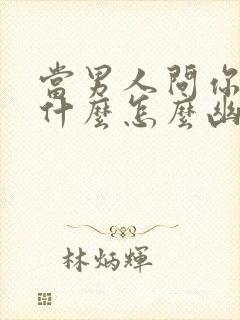 當男人問你
什麼怎麼幽
林炳輝